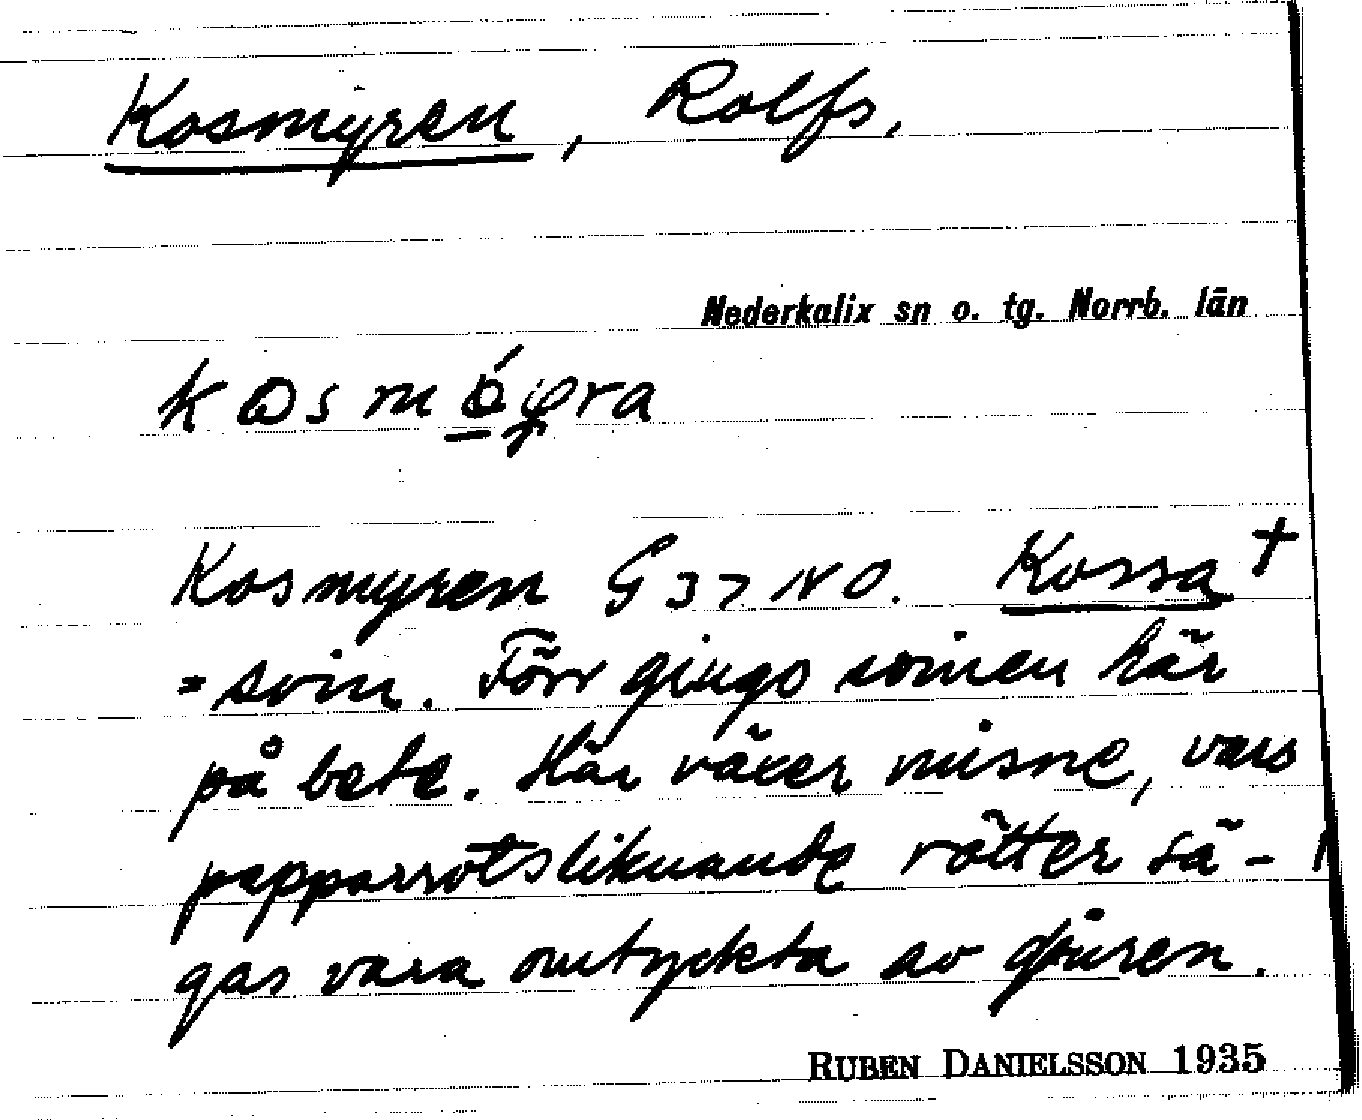 Kosmyren, Rolfs,
Nederkalix sn o. tg. Norrb. län
Kosmyren G 37 NO. Kossa †
= svin. Förr gingo svinen här
på bete. Här växer misne, vars
pepparrotsliknande rötter sä-
gas vara omtyckta av djuren.
RUBEN DANIELSSON 1935